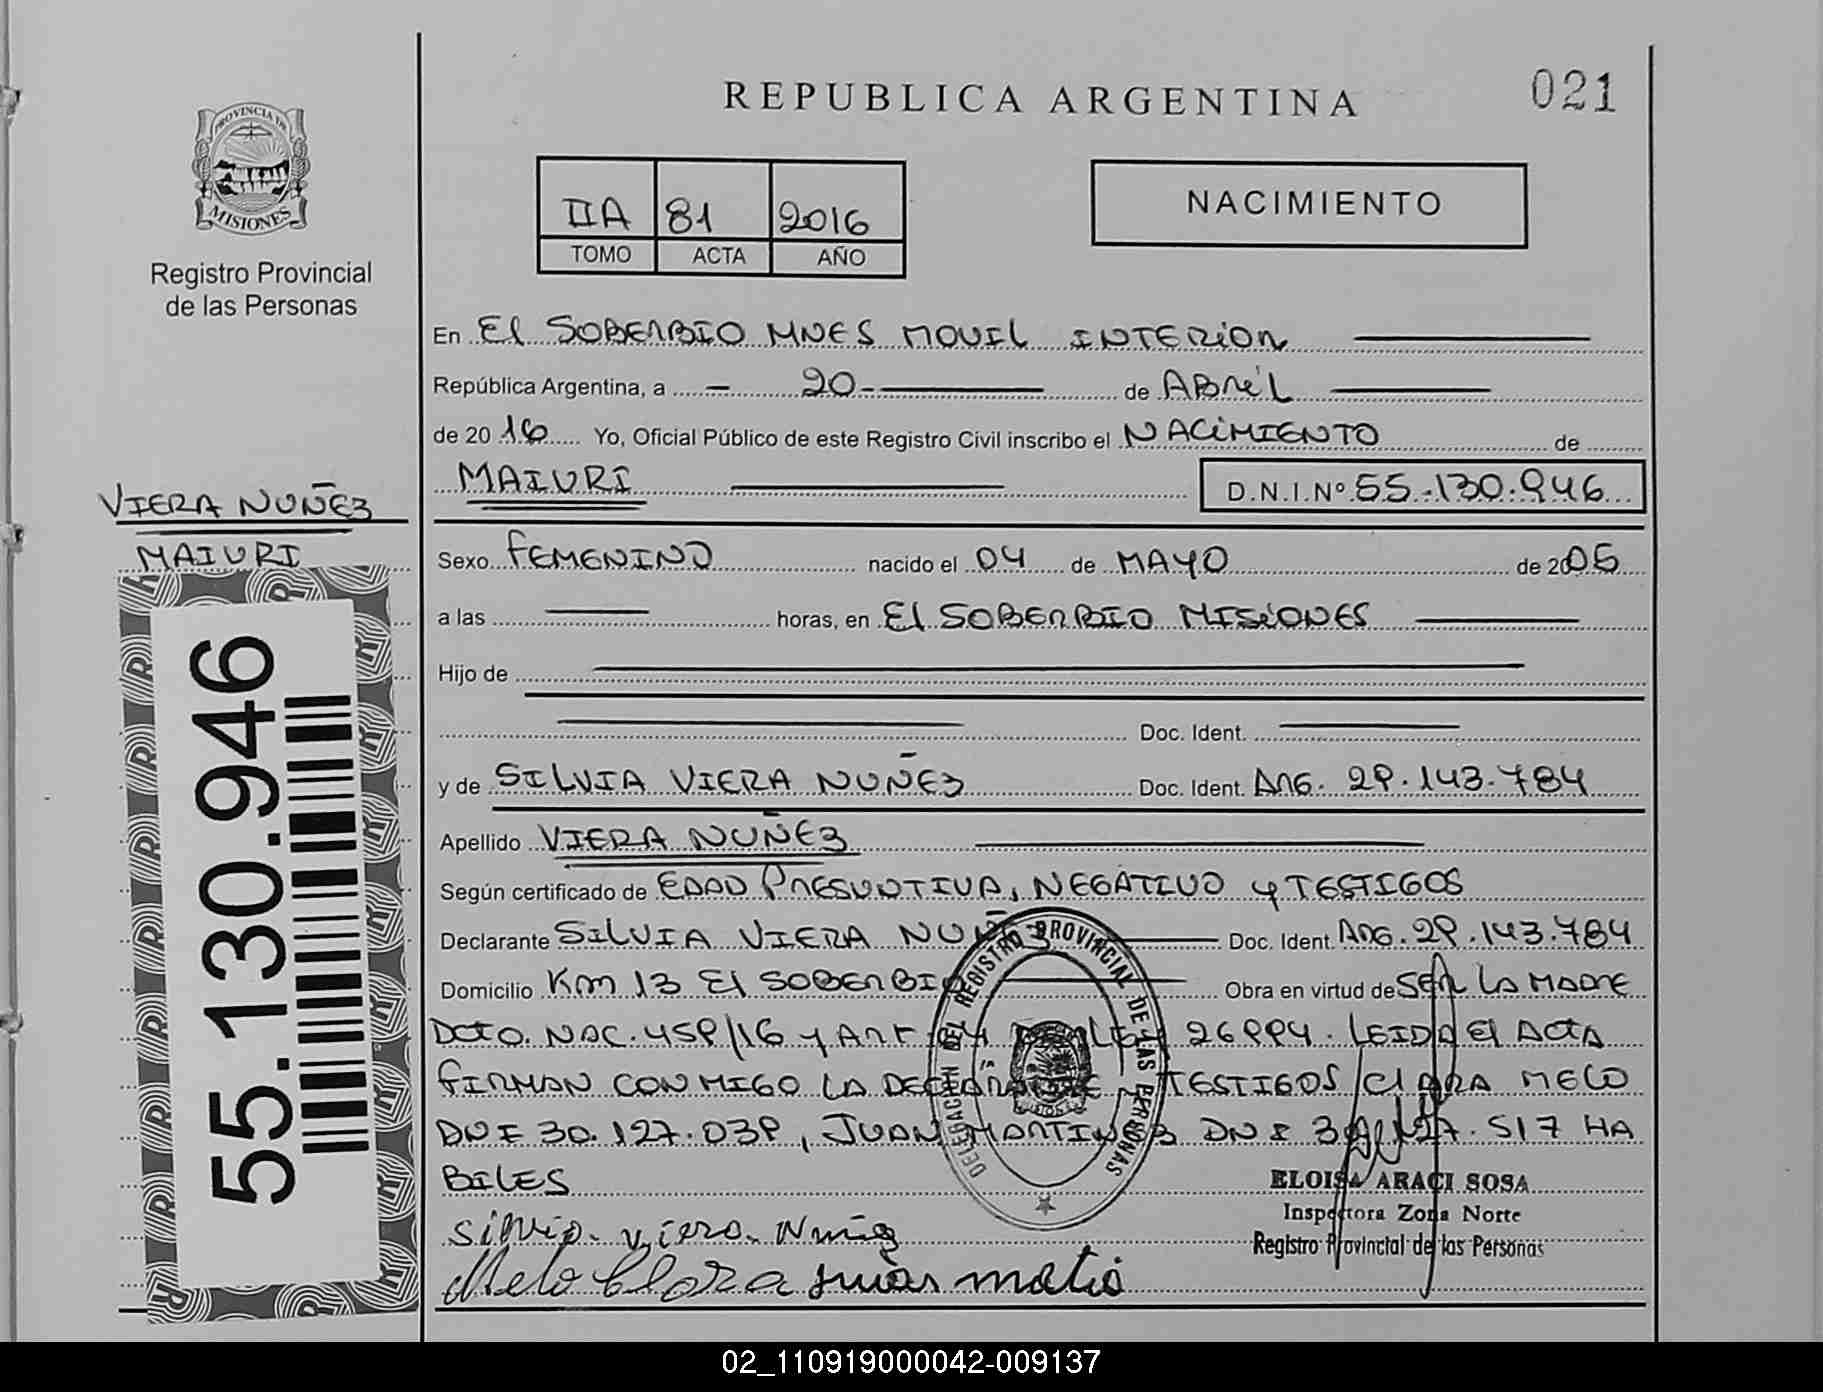 REPUBLICA ARGENTINA
021
PROVINCIA DE
MISIONES
Registro Provincial
de las Personas
IIA 81 2016
TOMO ACTA AÑO
NACIMIENTO
En El SOBERBIO MNES MOVIL INTERIOR
República Argentina, a 20 de ABRIL
de 2016 Yo, Oficial Público de este Registro Civil inscribo el NACIMIENTO de
MAIURI
D.N.I.Nº 55.130.946
VIERA NUÑEZ
MAIURI
Sexo FEMENINO nacido el 04 de MAYO de 2005
a las horas, en El SOBERBIO MISIONES
Hijo de
Doc. Ident.
y de SILVIA VIERA NUÑEZ Doc. Ident. ARG. 29.143.784
Apellido VIERA NUÑEZ
Según certificado de EDAD PRESUNTIVA, NEGATIVO y TESTIGOS
Declarante SILVIA VIERA NUÑEZ Doc. Ident. ARG. 29.143.784
Domicilio Km 13 El SOBERBIO Obra en virtud de SER LA MADRE
DCTO. NAC. 459/16 y ART 26994. LEIDA El ACTA
FIRMAN CONMIGO LA DECLARANTE TESTIGOS ClARA MELO
DNI 30.127.039, JUAN MARTINEZ DNI 517 HA
BILES
DELEGACION DEL REGISTRO PROVINCIAL DE LAS PERSONAS
ELOISA ARACI SOSA
Inspectora Zona Norte
Registro Provincial de las Personas
silvia viera Nuñez
Melo Clara
55.130.946
02_110919000042-009137